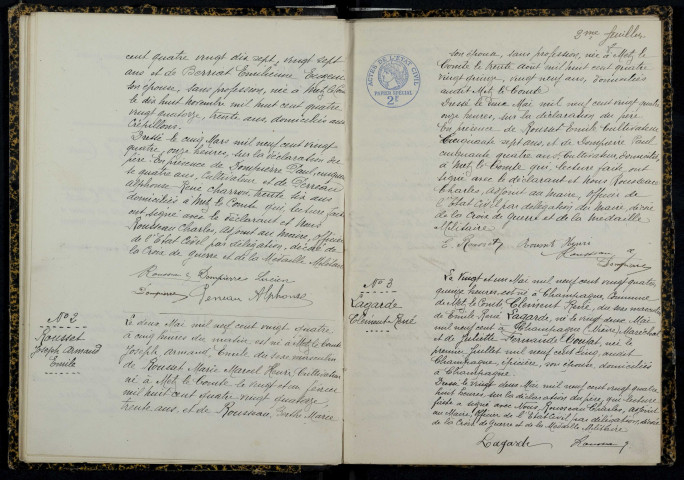 cent quatre vingt dix sept, vingt sept
ans et de Barriat Emilienne
son épouse, sans profession, née à Met le Comte
le dix huit novembre mil huit cent quatre
vingt quatorze, trente ans, domiciliés aux
Échillons.
Dressé le cinq Mars mil neuf cent vingt
quatre, onze heures, sur la déclaration du
père. En présence de Dompierre Paul, cinquan
te quatre ans, Cultivateur et de Perreau
Alphonse René charron, trente six ans
domiciliés à Met le Comte qui, lecture faite
ont signé avec le déclarant et Nous
Rousseau Charles, adjoint au maire, officier
de l'État Civil par délégation, décoré de
la Croix de guerre et de la Médaille Militaire
Dompierre Lucien
Dompierre Perreau Alphonse
N° 2
Rousset
Joseph Armand
Emile
Le deux Mai mil neuf cent vingt quatre
à cinq heures du matin est né à Met le Comte
Joseph Armand Emile du sexe masculin
de Rousset Marie Marcel Henri, Cultivateur
né à Met le Comte le vingt et un février
mil huit cent quatre vingt quatorze,
trente ans, et de Rousseau Marie
3me feuillet
ACTES DE L'ÉTAT CIVIL
PAPIER SPÉCIAL
2F
son épouse, sans profession, née à Met le
Comte le trente août mil huit cent quatre
vingt quinze, vingt neuf ans, domiciliés
audit Met le Comte
Dressé le deux Mai mil neuf cent vingt quatre
onze heures, sur la déclaration du père.
En présence de Rousset Emile Cultivateur
Cinquante sept ans, et de Dompierre Paul
cinquante quatre ans, Cultivateur, domiciliés
à Met le Comte qui, lecture faite ont
signé avec le déclarant et Nous Rousseau
Charles, adjoint au maire, officier de
l'État Civil par délégation du maire, décoré
de la Croix de guerre et de la médaille
Militaire
E. Rousset Rousset Henri
Rousseau
Dompierre
N° 3
Lagarde
Clément René
Le vingt et un Mai mil neuf cent vingt quatre,
quinze heures, est né à Champagne, Commune
de Met le Comte Clément René, du sexe masculin
de Emile René Lagarde, né le vingt deux Mai
mil neuf cent à Champagne Maréchal
et de Juliette Fernande née le
premier Juillet mil neuf cent audit
Champagne, épicière, son épouse, domiciliés
à Champagne.
Dressé le vingt deux Mai mil neuf cent vingt quatre
huit heures sur la déclaration du père, qui, lecture
faite a signé avec Nous, Rousseau Charles, adjoint
au Maire, officier de l'État Civil par délégation, décoré
de la Croix de Guerre et de la Médaille Militaire.
Lagarde Rousseau